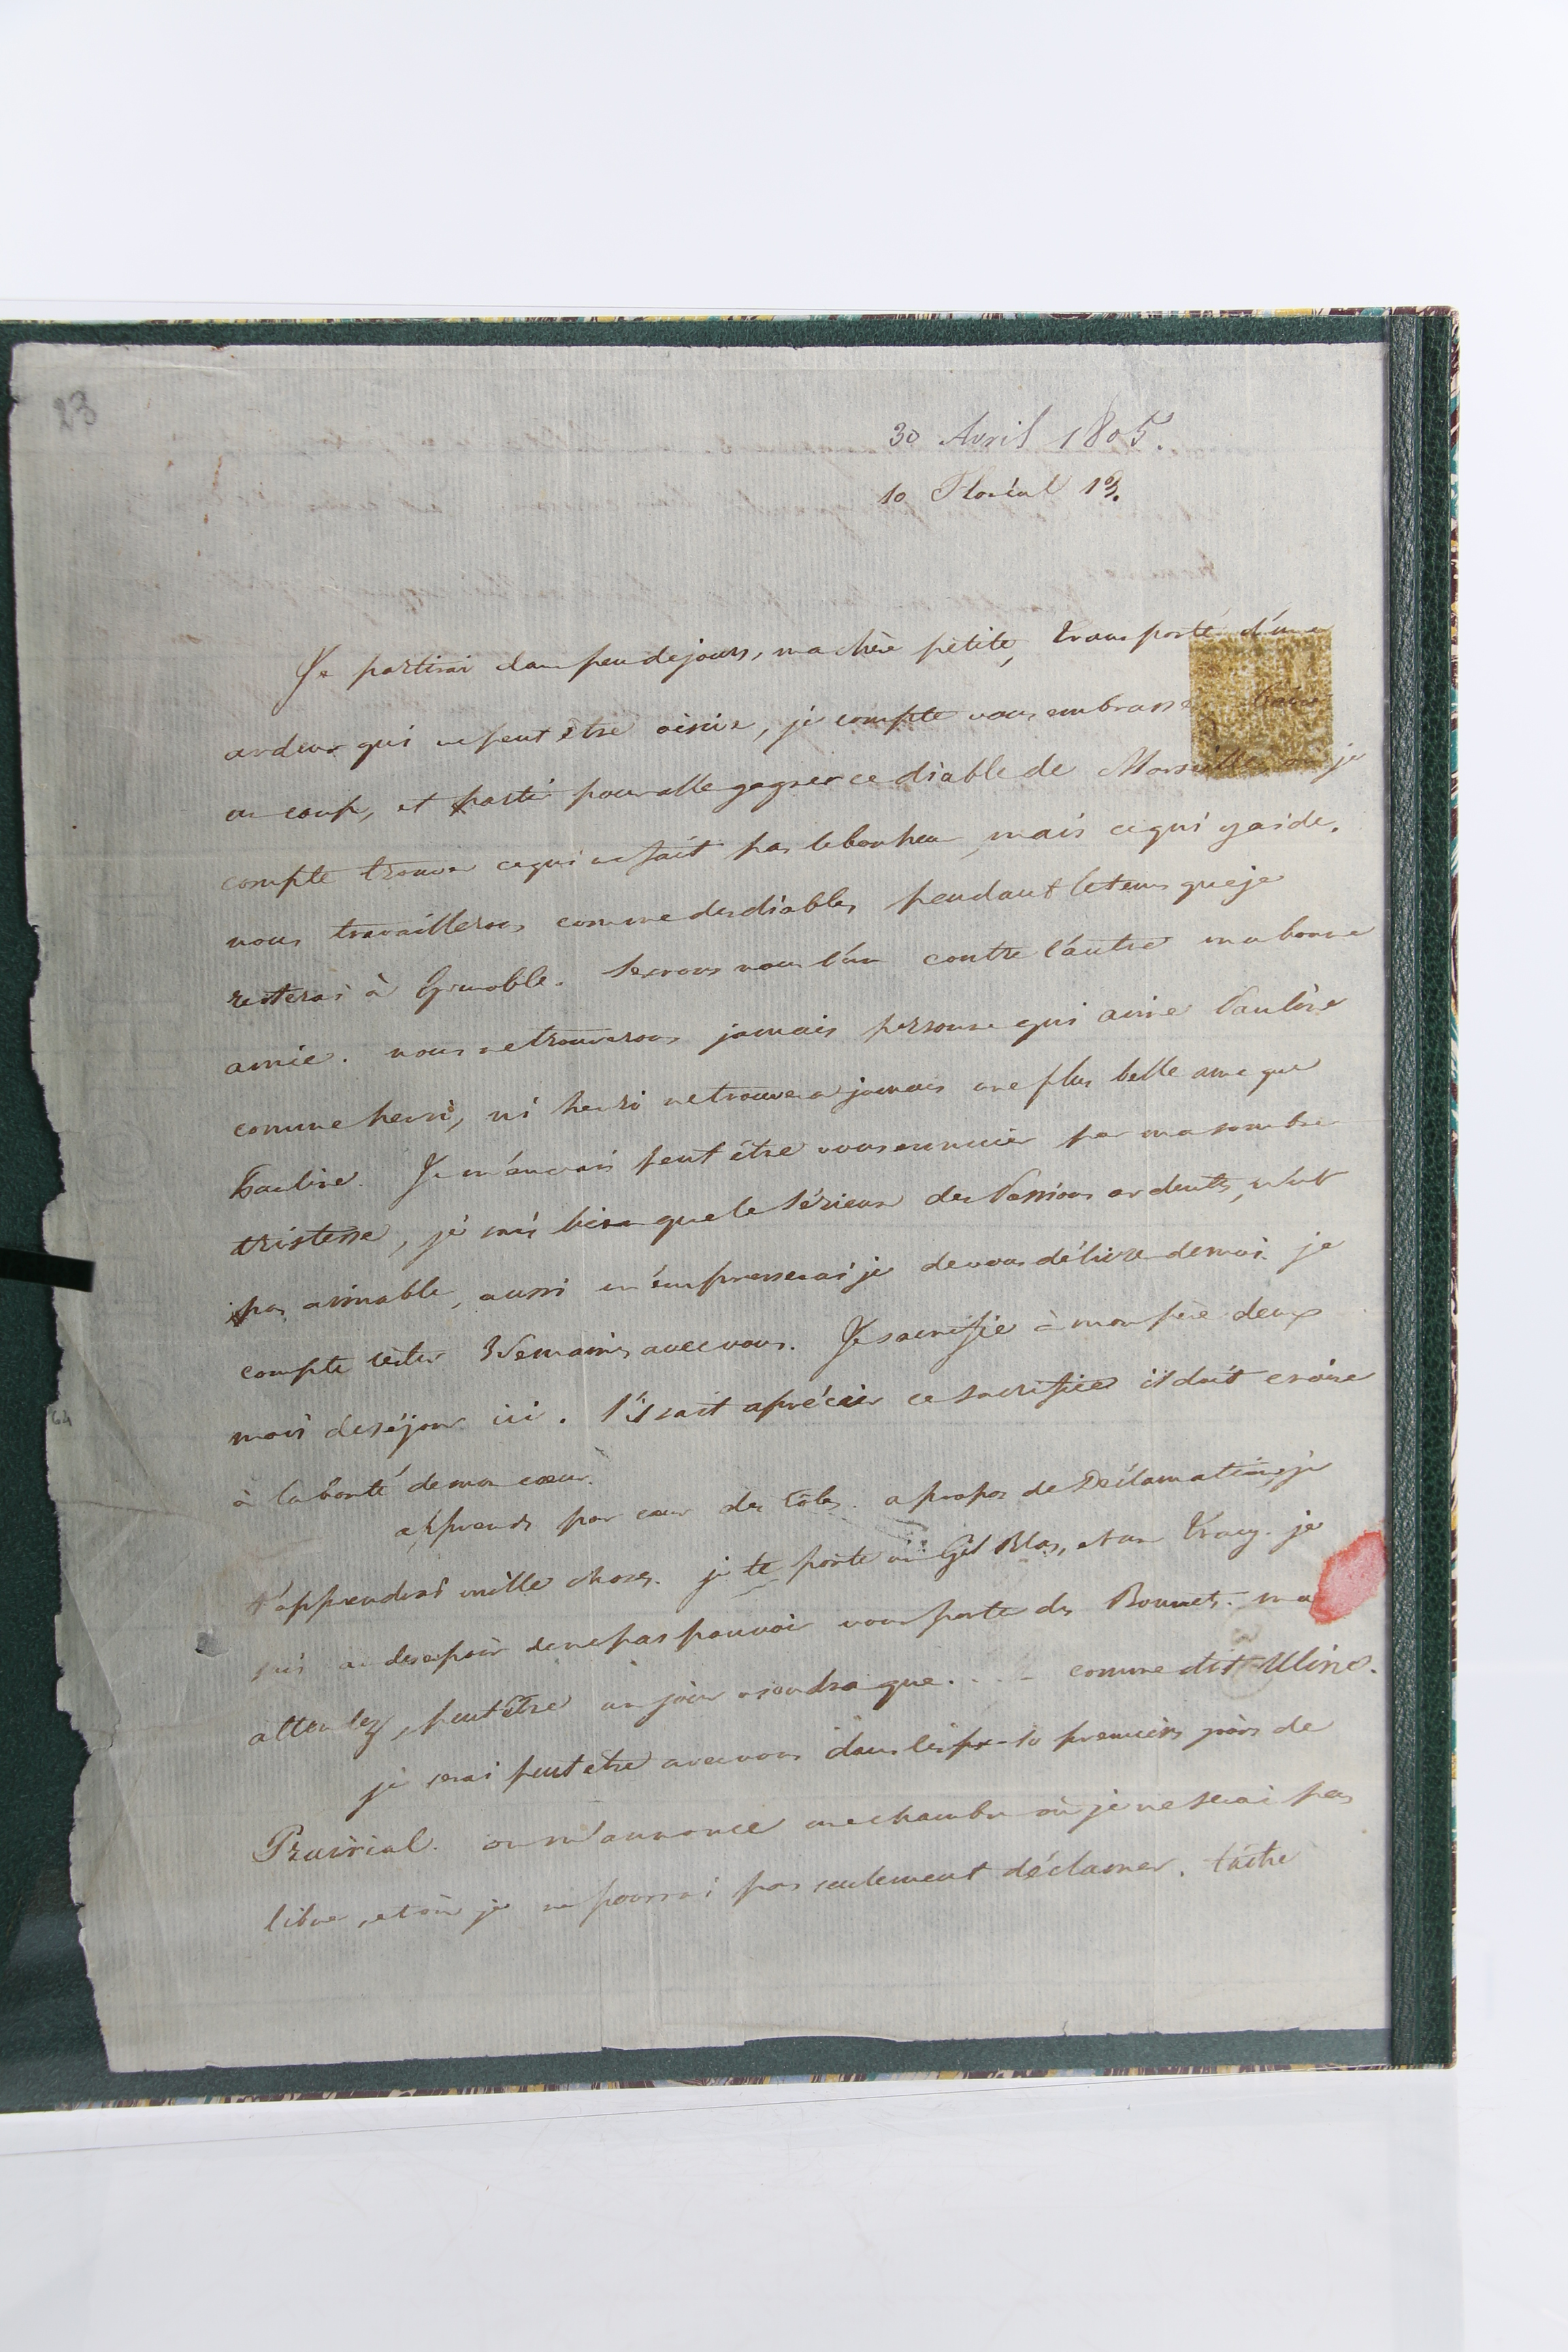 23
30 Avril 1805.
10 Floréal 13.
Je partirai dans peu de jours, ma chère petite, transporté d'une
ardeur qui ne peut être oisive, je compte vous embrasser
un coup, et partir pour aller gagner ce diable de Marseille où je
compte trouver ce qui ne fait pas le bonheur, mais ce qui y aide.
nous travaillerons comme des diables pendant le tems que je
resterai à Grenoble. Serrons nous l'un contre l'autre ma bonne
amie. nous ne trouverons jamais personne qui aime Pauline
comme henri, ni henri ne trouvera jamais une plus belle ame que
Pauline. Je m'en vais peut être vous ennuier par ma sombre
tristesse, je sais bien que le sérieux des Passions ardentes, n'est
pas aimable, aussi m'empresserai je de vous délivrer de moi. je
compte rester 3 Semaines avec vous. Je sacrifie à mon père deux
mois de séjour ici. s'il sait aprécier ce sacrifice il doit croire
à la bonté de mon cœur.
apprends par cœur des rôles. a propos de Déclamation, je
t'apprendrai mille choses. je te porte un Gil Blas, et un Tracy. je
suis au desespoir de ne pas pouvoir vous porter des Bonnets. ma
attendez, peut être un jour viendra que.... comme dit Uline.
je serai peut etre avec vous dans les 10 premiers jours de
Prairial. on m'annonce une chambre où je ne serai pas
libre, et où je ne pourrai pas seulement déclamer. tâche
64